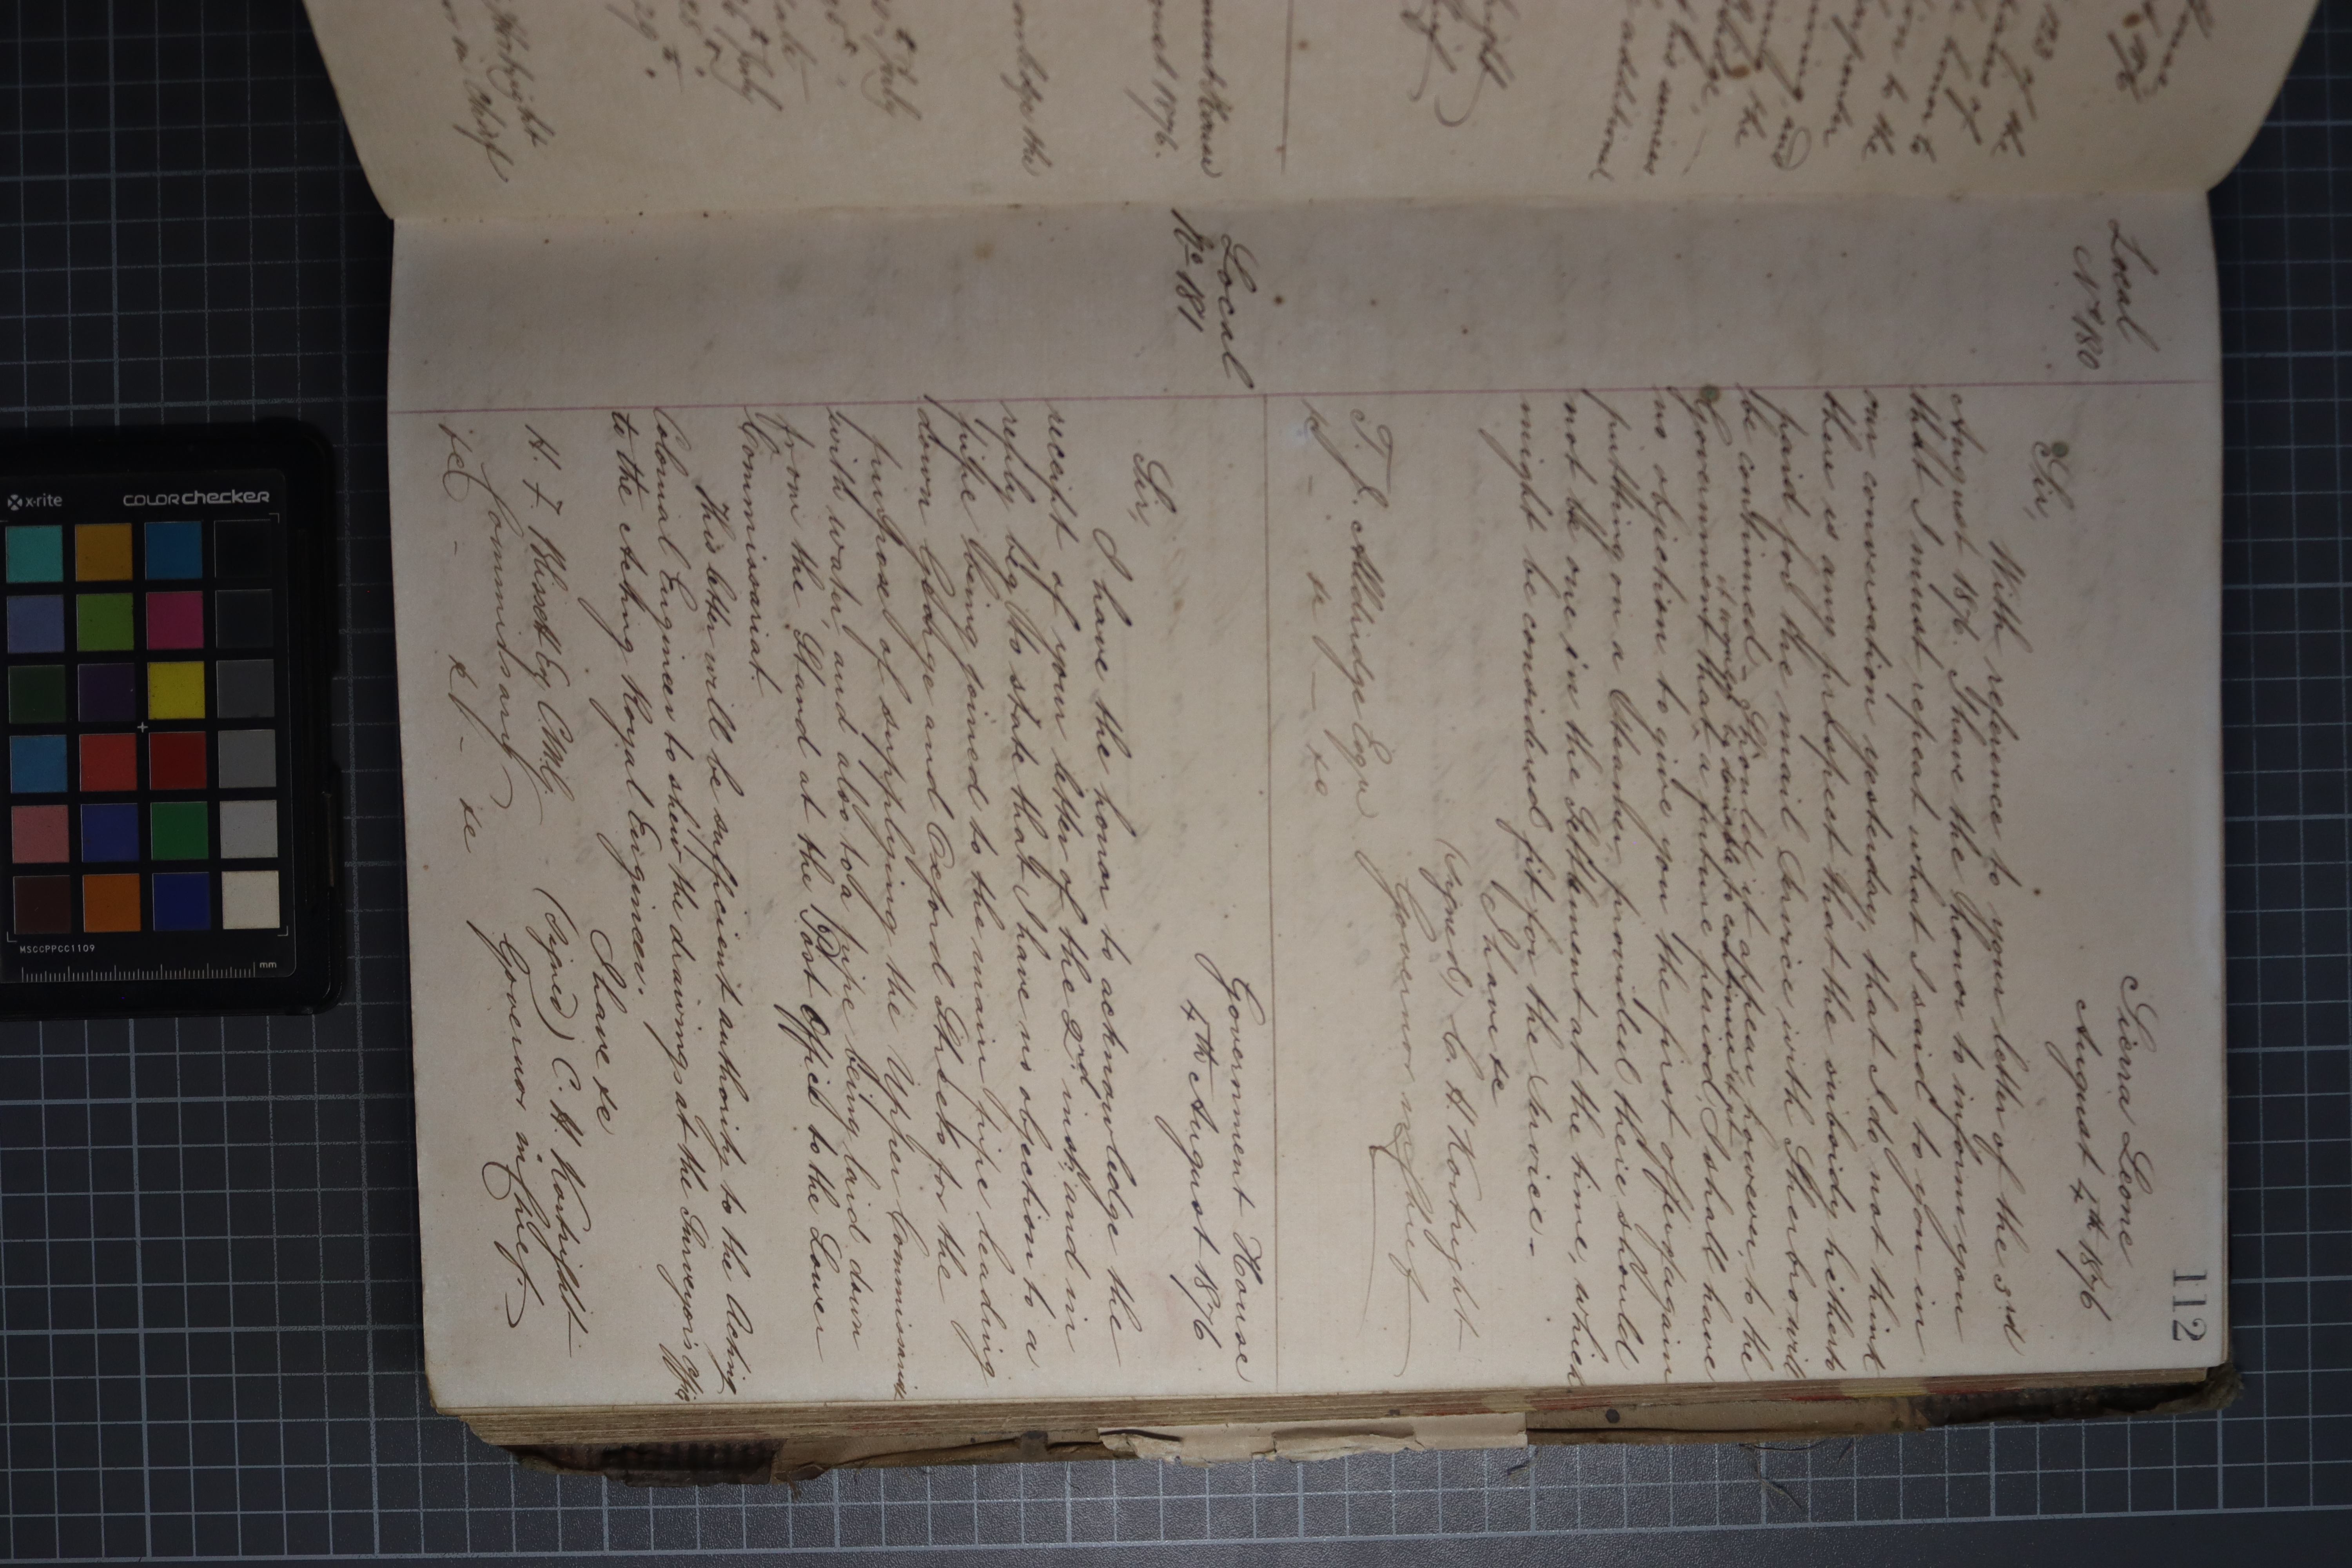 112
Local
No 180
Sierra Leone
August 4th 1876
Sir,
With reference to your letter of the 3rd
August 1876. I have the honor to inform you
that I must repeat what I said to you in
our conversation yesterday, that I do not think
there is any prospect that the subsidy hitherto
paid for the mail Service with Sherbro will
be continued - Should it appear, however, to the
Government that it would be desirable to continue it at a future period, I shall have
no objection to give you the first offer again
putting on a Steamer, provided there should
not be one in the Settlement at the time, which
might be considered fit for the Service -
I have &c
(Signed) C. H. Kortright
Governor in Chief
T. J. Alldridge Esqre
&c - &c - &c
Local
No 181
Government House
4th August 1876
Sir,
I have the honor to acknowledge the
receipt of your letter of the 2nd inst, and in
reply beg to state that I have no objection to a
pipe being joined to the main pipe leading
down George and Oxford Streets for the
purpose of supplying the Upper Commissariat
with water, and also to a pipe being laid down
from the Stand at the Post Office to the Lower
Commissariat.
This letter will be sufficient authority to the Acting
Colonial Engineer to shew the drawings at the Surveyor's Office
to the Acting Royal Engineer.
I have &c
(Signed) C. H. Kortright
Governor in Chief.
H. F. Blissett Esq C.M.G.
Commissary
&c - &c - &c
x-rite
colorchecker
MSCCPPCC1109
mm